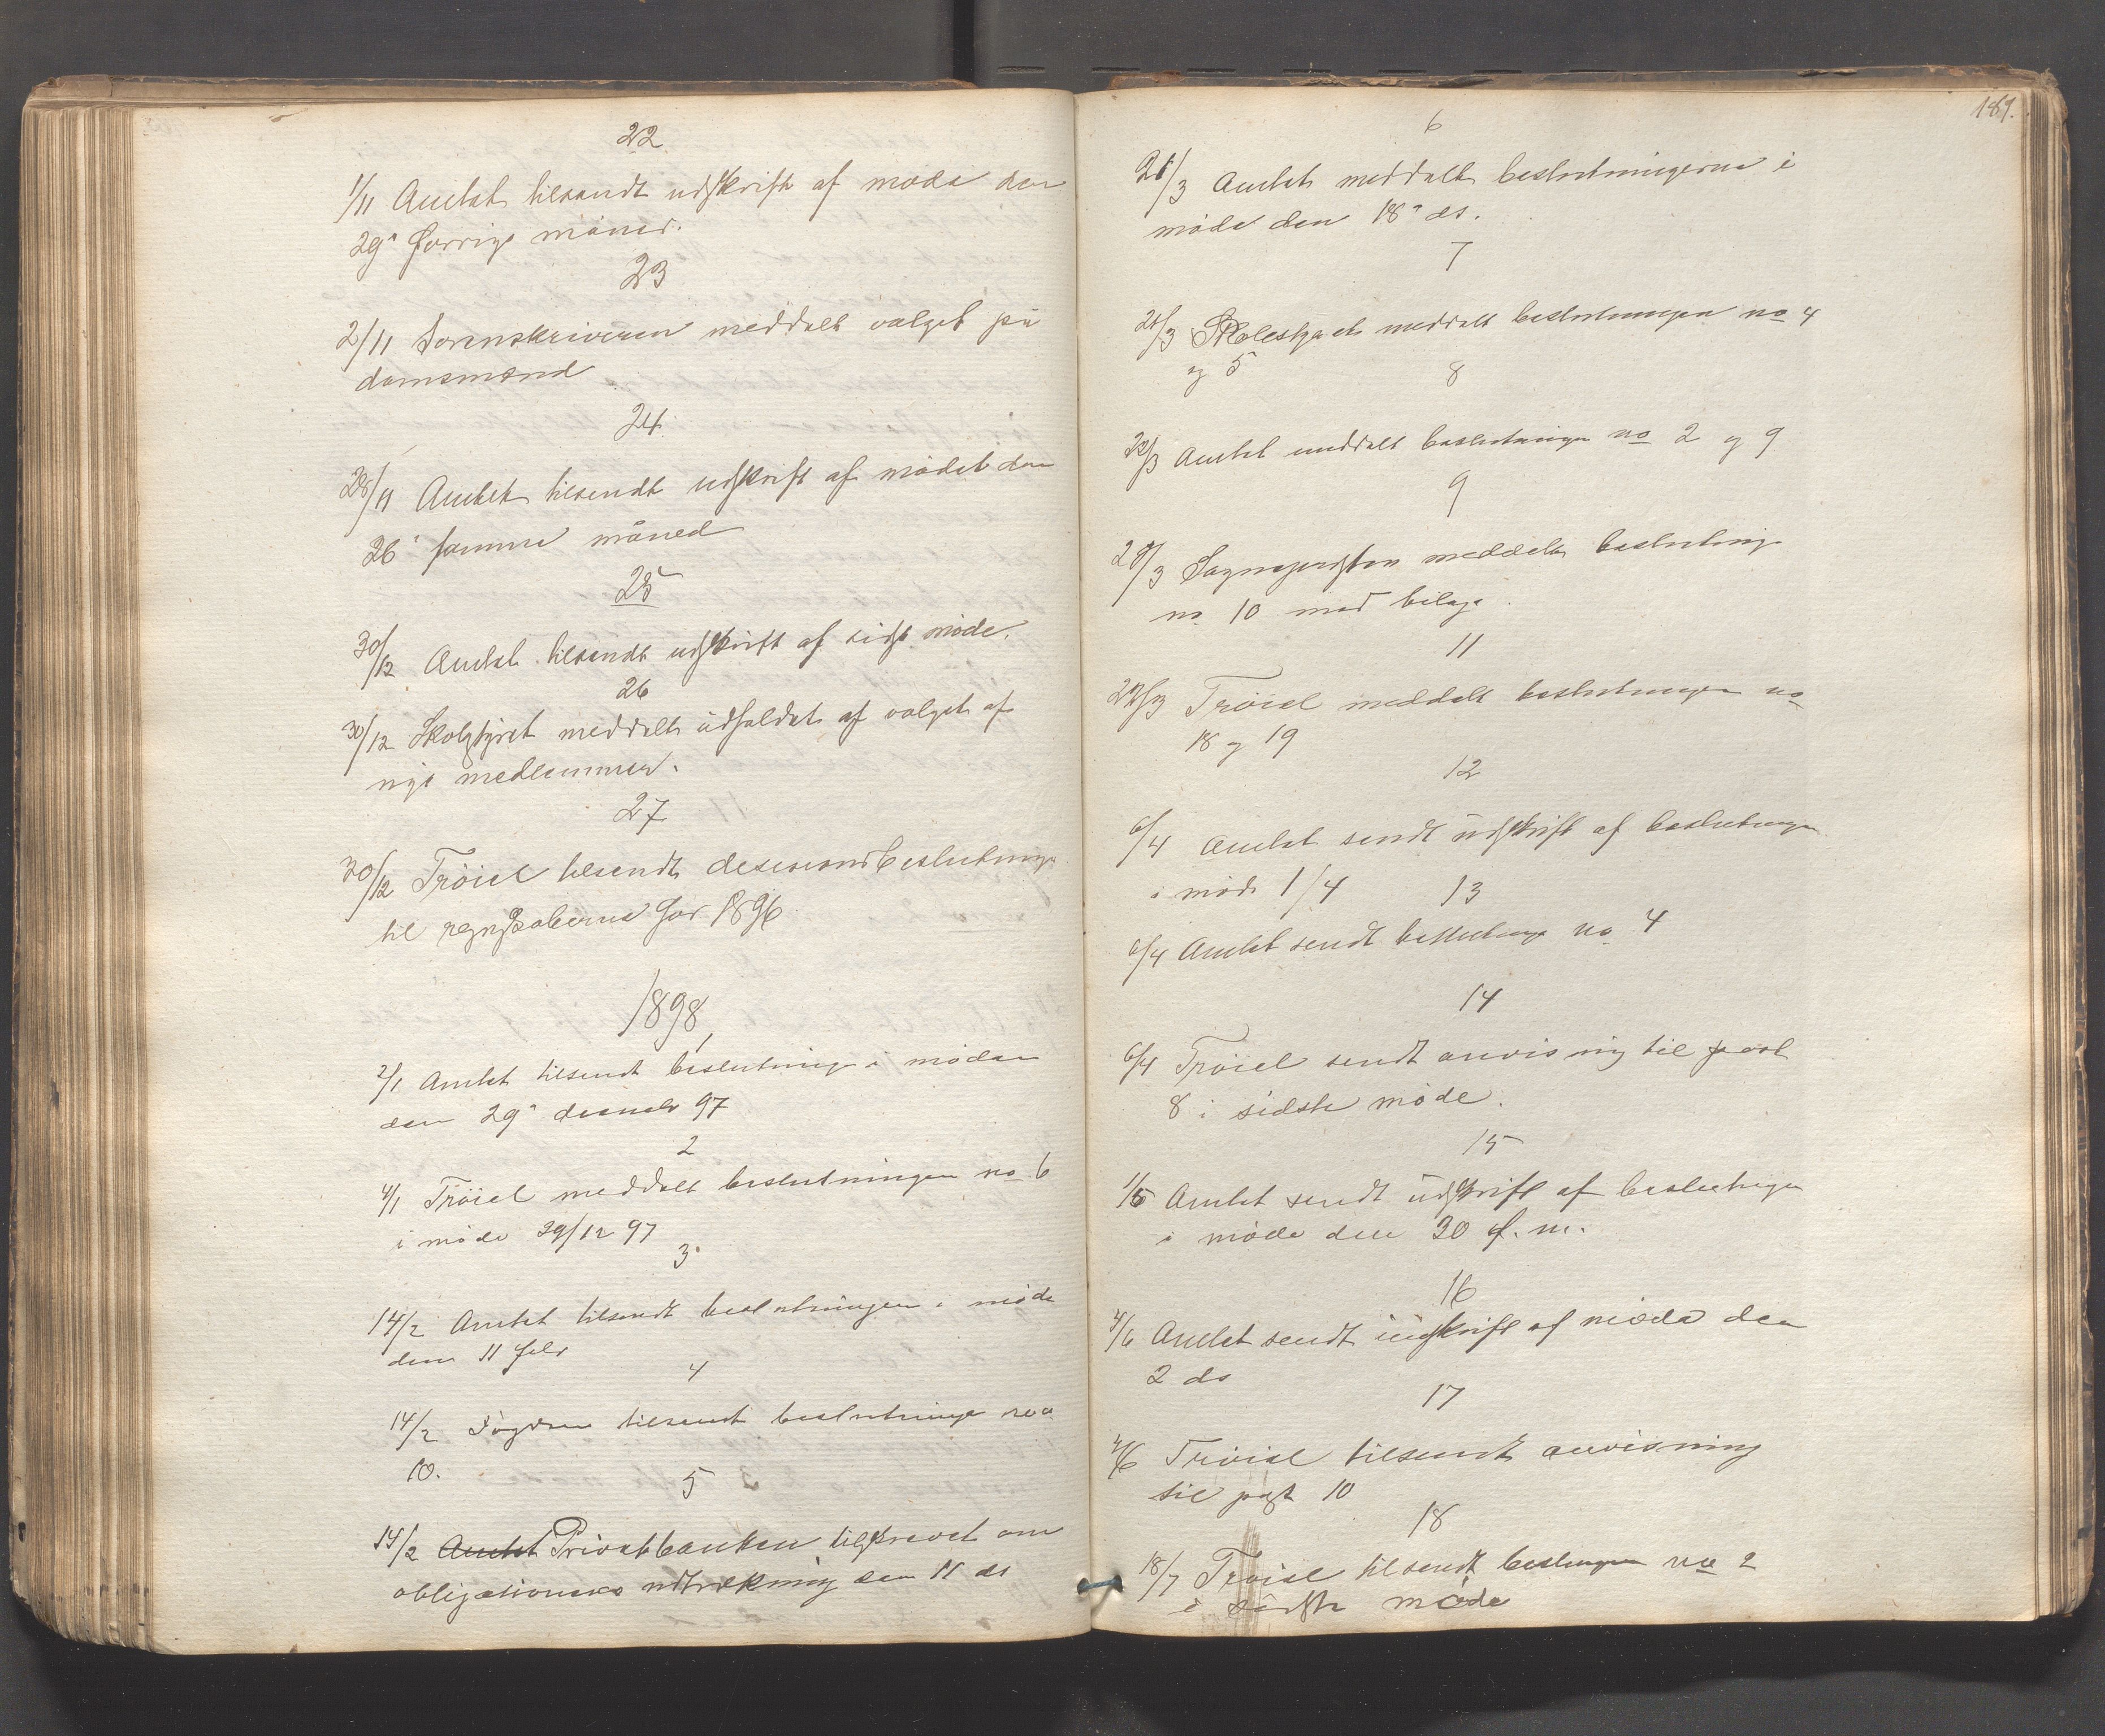 22
1/11 Amtet tilsendt udskrift af møde den
29de forrige måned.
23
2/11 Sorenskriveren meddelt valget på
domsmænd
24
28/11 Amtet tilsendt udskrift af mødet den
26 samme måned
25
30/12 Amtet tilsendt udskrift af sidste møde.
26
30/12 Skolestyret meddelt udfaldet af valget af
nye medlemmer.
27
30/12 Tröiel tilsendt desisionsbeslutninge
til regnskaberne for 1896
1898,
2/1 Amtet tilsendt beslutninge i møden
den 29de decmbr 97
2
4/1 Tröiel meddelt beslutningen no 6
i møde 29/12 97
3
14/2 Amtet tilsendt beslutningen i møde
den 11 febr
4
14/2 Fogden tilsendt beslutninge no
10.
5
14/2 Amtet Privatbanken tilskrevet om
obligationers udtrækning den 11 ds
189.
6
21/3 Amtet meddelt beslutningerne i
møde den 18de ds.
7
21/3 Skolestyret meddelt beslutningen no 4
og 5
8
22/3 Amtet meddelt beslutninge no 2 og 9
9
28/3 Sognepresten meddelt beslutning
no 10 med bilage
11
29/3 Tröiel meddelt beslutningen no
18 og 19
12
6/4 Amtet sendt udskrift af beslutninger
i møde 1/4
13
6/4 Amtet sendt beslutninge no 4
14
6/4 Tröiel sendt anvisning til post
8 i sidste møde.
15
1/5 Amtet sendt udskrift af beslutninger
i møde den 30 f. m.
16
4/6 Amtet sendt udskrift af møde den
2 ds
17
4/6 Tröiel tilsendt anvisning
til post 10
18
18/7 Tröiel tilsendt beslutningen no 2
i sidste møde